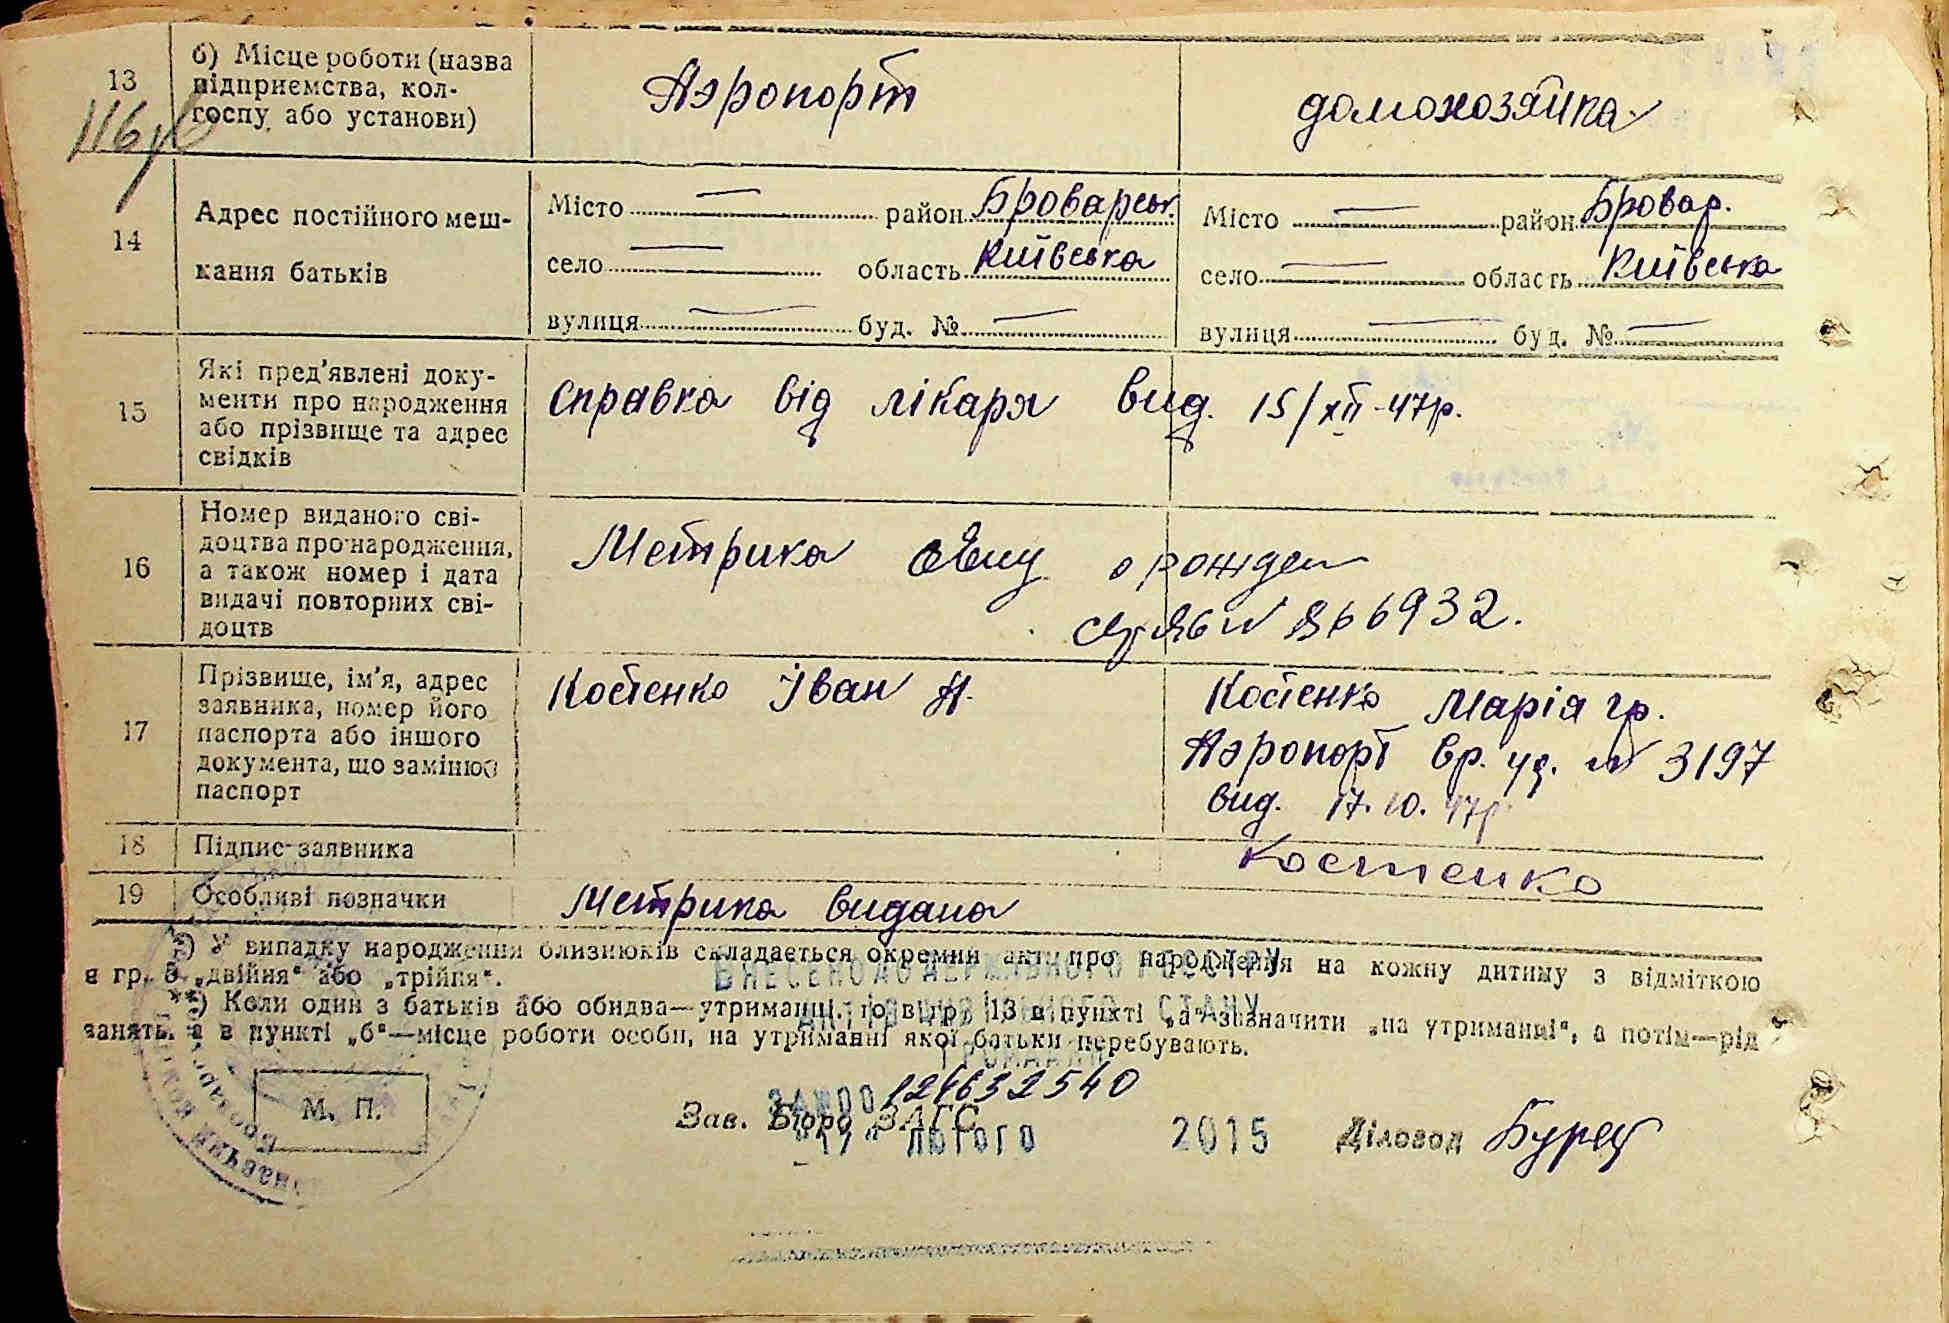 13
116
б) Місце роботи (назва
підприємства, кол-
госпу або установи)
Аэропорт
домохозяйка
14
Адрес постійного меш-
кання батьків
Місто — район Броварськ.
село — область Київська
вулиця — буд. № —
Місто — район Бровар.
село — область Київська
вулиця — буд. № —
15
Які пред'явлені доку-
менти про народження
або прізвище та адрес
свідків
Справка від лікаря вид. 15/XII-47р.
16
Номер виданого сві-
доцтва про народження,
а також номер і дата
видачі повторних сві-
доцтв
Метрика о рожден
№ 866932.
17
Прізвище, ім'я, адрес
заявника, номер його
паспорта або іншого
документа, що замінює
паспорт
Костенко Іван Н.
Костенко Марія Гр.
Аэропорт вр. уд. № 3197
вид. 17.10.47р
18
Підпис заявника
Костенко
19
Особливі позначки
Метрика видана
*) У випадку народження близнюків складається окремий акт про народження на кожну дитину з відміткою
в гр. 8 „двійня“ або „трійня“.
**) Коли один з батьків або обидва—утриманці, то в гр. 13 в пункті „а“ зазначити „на утриманні“, а потім—рід
занять, а в пункті „б“—місце роботи особи, на утриманні якої батьки перебувають.
ВНЕСЕНО ДО ДЕРЖАВНОГО РЕЄСТРУ
АКТІВ ЦИВІЛЬНОГО СТАНУ
ГРОМАДЯН
ЗА №00124632540
"17" ЛЮТОГО 2015
М. П.
Зав. Бюро ЗАГС
Діловод Бурец